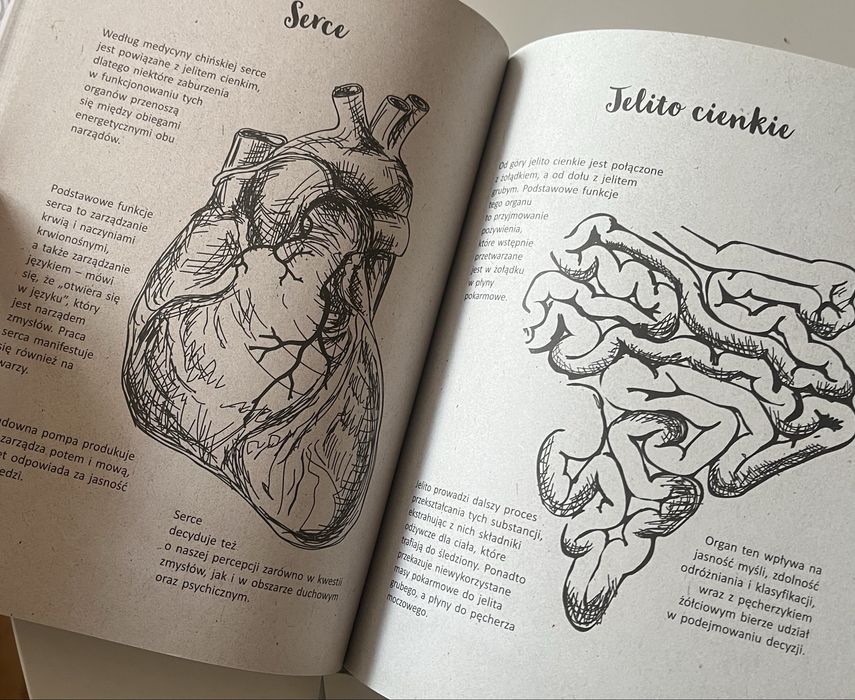 Serce
Według medycyny chińskiej serce
jest powiązane z jelitem cienkim,
dlatego niektóre zaburzenia
w funkcjonowaniu tych
organów przenoszą
się między obiegami
energetycznymi obu
narządów.
Podstawowe funkcje
serca to zarządzanie
krwią i naczyniami
krwionośnymi,
a także zarządzanie
językiem – mówi
się, że „otwiera się
w języku", który
jest narządem
zmysłów. Praca
serca manifestuje
się również na
pompa produkuje
zarządza potem i mową,
odpowiada za jasność
Serce
decyduje też
o naszej percepcji zarówno w kwestii
zmysłów, jak i w obszarze duchowym
oraz psychicznym.
Jelito cienkie
Od góry jelito cienkie jest połączone
z żołądkiem, a od dołu z jelitem
grubym. Podstawowe funkcje
tego organu
to przyjmowanie
pożywienia,
które wstępnie
przetwarzane
jest w żołądku
w płyny
pokarmowe.
Jelito prowadzi dalszy proces
przekształcania tych substancji,
ekstrahując z nich składniki
odżywcze dla ciała, które
trafiają do śledziony. Ponadto
przekazuje niewykorzystane
masy pokarmowe do jelita
grubego, a płyny do pęcherza
moczowego.
Organ ten wpływa na
jasność myśli, zdolność
odróżniania i klasyfikacji,
wraz z pęcherzykiem
żółciowym bierze udział
w podejmowaniu decyzji.